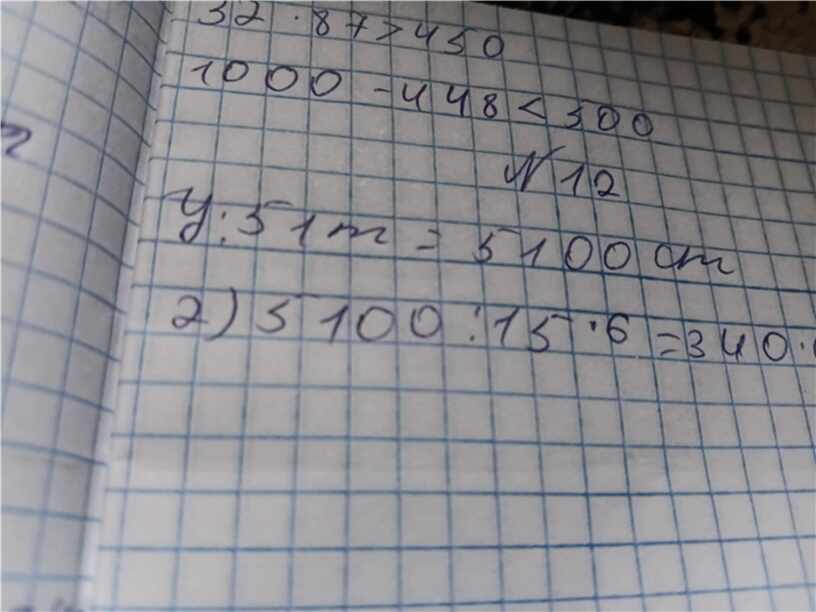 32 · 87 > 450
1000 - 448 < 500
N 12
у: 51 m = 5100 cm
2) 5100 : 15 · 6 = 340 ·